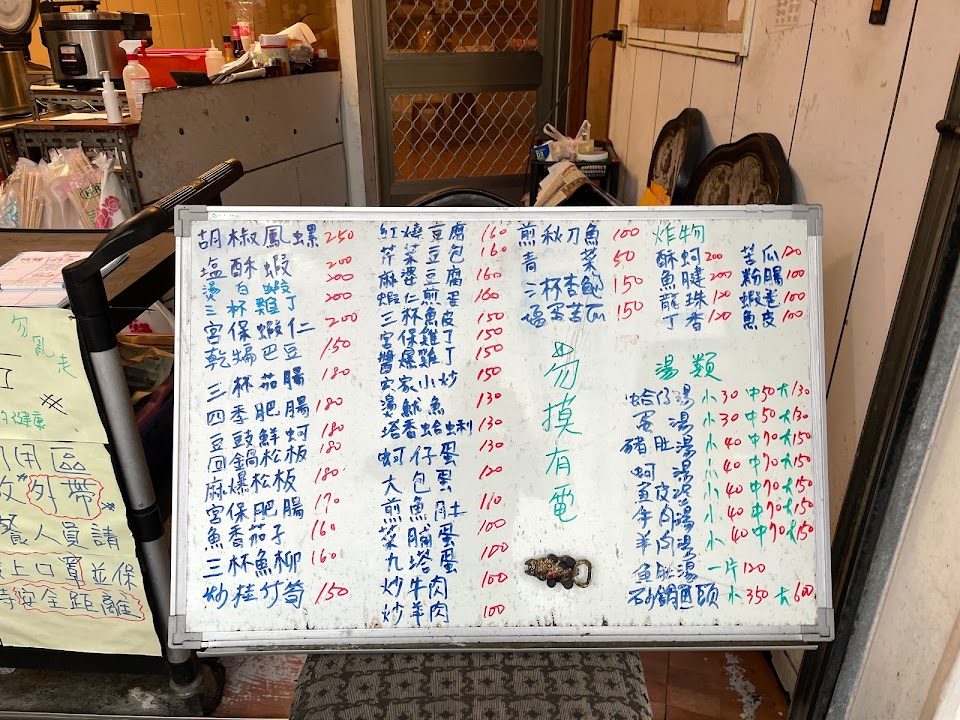 胡椒鳳螺 250
塩酥蝦 200
燙白蝦 200
三杯雞丁 200
宮保蝦仁 200
乾煸巴豆 150
三杯茄腸 180
四季肥腸 180
豆豉鮮蚵 180
回鍋松板 180
麻爆松板 180
宮保肥腸 170
魚香茄子 160
三杯魚柳 160
炒桂竹筍 150
紅燒豆腐 160
芹菜豆包 160
麻婆豆腐 160
蝦仁煎蛋 160
三杯魚皮 150
宮保雞丁 150
醬爆雞丁 150
客家小炒 150
燙魷魚 130
塔香蛤蜊 130
蚵仔蛋 130
大包蛋 120
煎魚肚 110
菜脯蛋 100
九塔蛋 100
炒牛肉 100
炒羊肉 100
煎秋刀魚 100
青菜 50
三杯杏鮑 150
塩苦瓜 150
勿摸有電
炸物
酥蚵 200
魚腱 200
龍珠 120
丁香 120
苦瓜 120
粉腸 100
蝦捲 100
魚皮 100
湯類
蛤仔湯 小30 中50 大130
蛋湯 小30 中50 大130
豬肚湯 小40 中70 大150
蚵湯 小40 中70 大150
魚皮湯 小40 中70 大150
牛肉湯 小40 中70 大150
羊肉湯 小40 中70 大150
魚肚湯 一片120
砂鍋魚頭 小350 大600
勿亂走
用區
外帶
餐人員請
上口罩並保
持安全距離